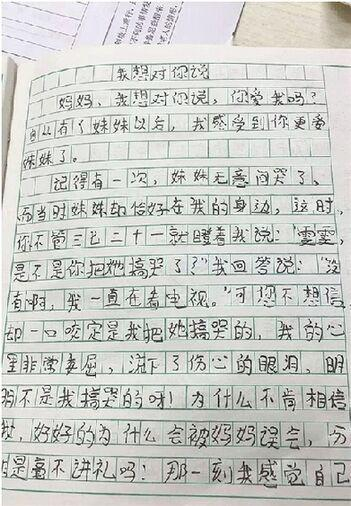 我想对你说
妈妈，我想对你说，你爱我吗？
自从有了妹妹以后，我感受到你更爱
妹妹了。
记得有一次，妹妹无意间哭了，
而当时妹妹却恰好在我的身边，这时，
你不管三七二十一就瞪着我说："雯雯，
是不是你把她搞哭了？"我回答说："没
有啊，我一直在看电视。"可您不想信
却一口咬定是我把她搞哭的，我的心
里非常委屈，流下了伤心的眼泪，明
明不是我搞哭的呀！为什么不肯相信
我，好好的为什么会被妈妈误会，
是毫不讲礼吗！那一刻我感觉自己